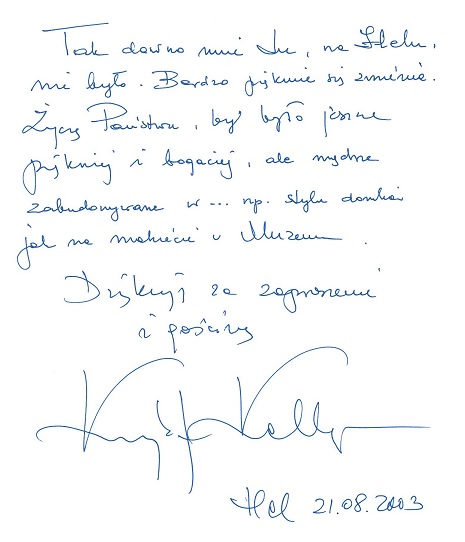 Tak dawno mnie tu, na Helu,
nie było. Bardzo pięknie się zmienia.
Życzę Państwu, by było jeszcze
piękniej i bogaciej, ale mądrze
zabudowywane w ... np. stylu domków
jak na makiecie w Muzeum.
Dziękuję za zaproszenie
i gościnę
Hel 21.08.2003